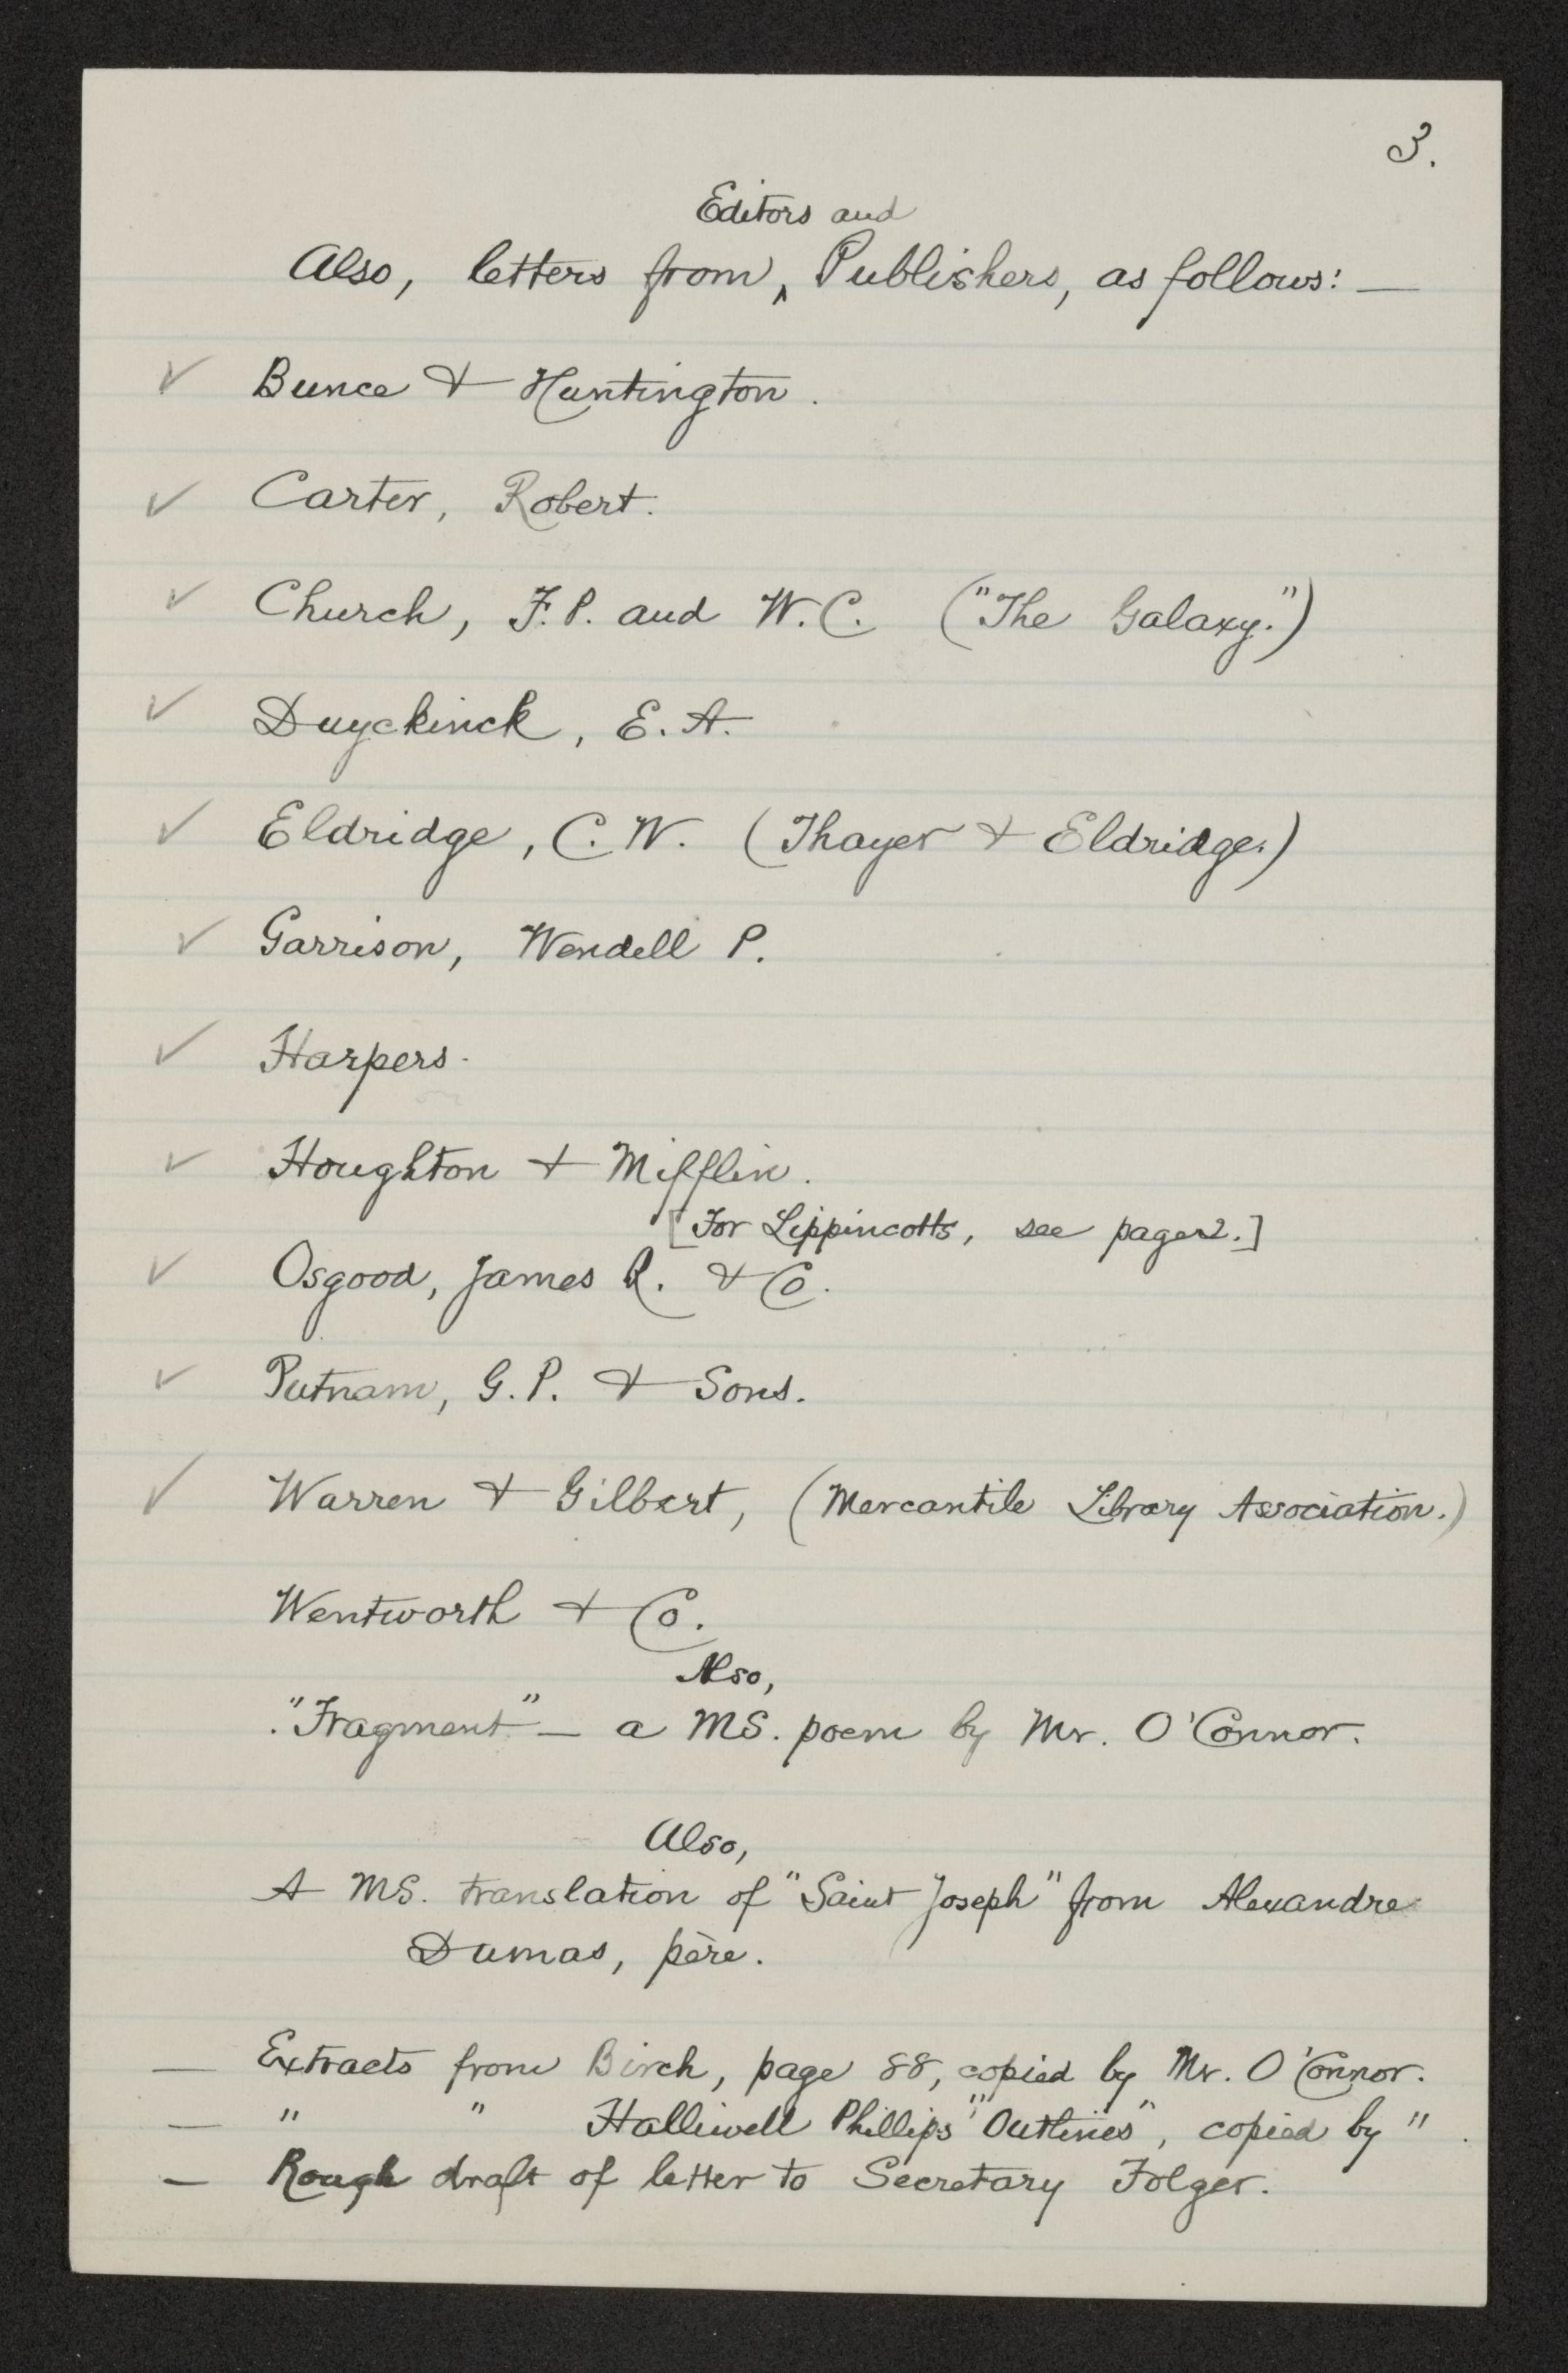 3.
Editors and
Also, letters from ‸ Publishers, as follows: —
✓ Bunce & Huntington.
✓ Carter, Robert.
✓ Church, F. P. and W. C. ("The Galaxy.")
✓ Duyckinck, E. A.
✓ Eldridge, C. W. (Thayer & Eldridge.)
✓ Garrison, Wendell P.
✓ Harpers.
✓ Houghton & Mifflin.
[For Lippincotts, see page 2.]
✓ Osgood, James R. & Co.
✓ Putnam, G. P. & Sons.
✓ Warren & Gilbert, (Mercantile Library Association.)
Wentworth & Co.
Also,
"Fragment" — a MS. poem by Mr. O'Connor.
Also,
A MS. translation of "Saint Joseph" from Alexandre
Dumas, père.
— Extracts from Birch, page 88, copied by Mr. O'Connor.
— " " Halliwell Phillips' "Outlines", copied by ".
— Rough draft of letter to Secretary Folger.